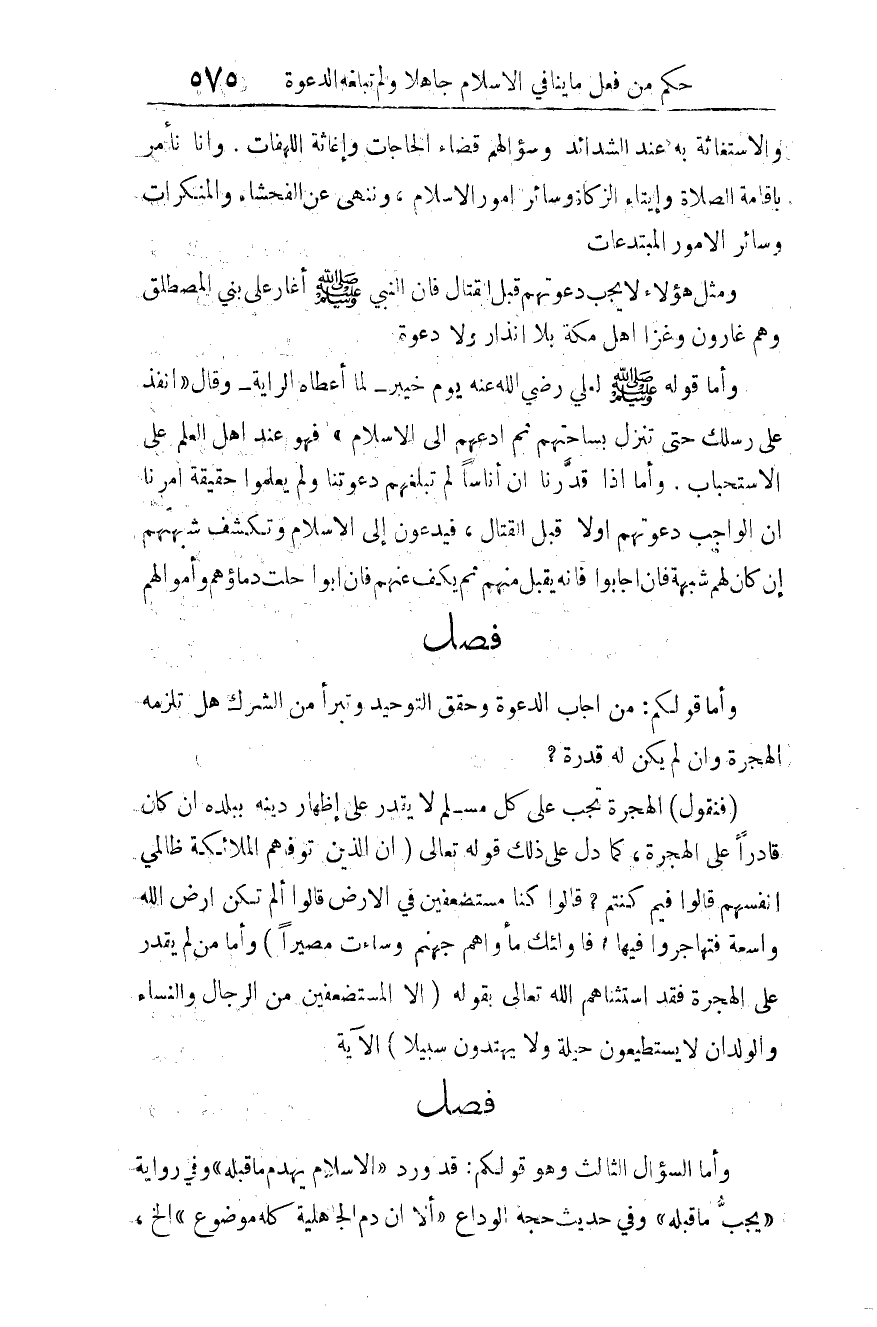 حكم من فعل ماينافي الاسلام جاهلا ولم تبلغه الدعوة ٥٧٥
والاستغاثة به عند الشدائد وسؤالهم قضاء الحاجات وإغاثة اللهفات . وانا نأمر
باقامة الصلاة وإيتاء الزكاة وسائر امور الاسلام ، وننهى عن الفحشاء والمنكرات
وسائر الامور المبتدعات
ومثل هؤلاء لا يجب دعوتهم قبل القتال فان النبي ﷺ أغار على بني المصطلق
وهم غارون وغزا اهل مكة بلا انذار ولا دعوة
وأما قوله ﷺ لعلي رضي الله عنه يوم خيبر ـ لما أعطاه الراية ـ وقال « انفذ
على رسلك حتى تنزل بساحتهم ثم ادعهم الى الاسلام » فهو عند اهل العلم على
الاستحباب . وأما اذا قدَّرنا ان أناساً لم تبلغهم دعوتنا ولم يعلموا حقيقة امرنا
ان الواجب دعوتهم اولا قبل القتال ، فيدعون إلى الاسلام وتكشف شبهتهم
إن كان لهم شبهة فان اجابوا فانه يقبل منهم ثم يكف عنهم فان ابوا حلت دماؤهم وأموالهم
فصل
وأما قولكم: من اجاب الدعوة وحقق التوحيد وتبرأ من الشرك هل تلزمه
الهجرة وان لم يكن له قدرة ؟
(فنقول) الهجرة تجب على كل مسلم لا يقدر على إظهار دينه ببلده ان كان
قادراً على الهجرة ، كما دل على ذلك قوله تعالى ( ان الذين توفهم الملائكة ظالمي
انفسهم قالوا فيم كنتم ؟ قالوا كنا مستضعفين في الارض قالوا ألم تسكن ارض الله
واسعة فتهاجروا فيها ؟ فاولئك مأواهم جهنم وساءت مصيراً ) وأما من لم يقدر
على الهجرة فقد استثناهم الله تعالى بقوله ( الا المستضعفين من الرجال والنساء
والولدان لا يستطيعون حيلة ولا يهتدون سبيلا ) الآية
فصل
وأما السؤال الثالث وهو قولكم: قد ورد «الاسلام يهدم ماقبله» وفي رواية
«يجبُّ ماقبله» وفي حديث حجة الوداع «ألا ان دم الجاهلية كله موضوع» الخ ،